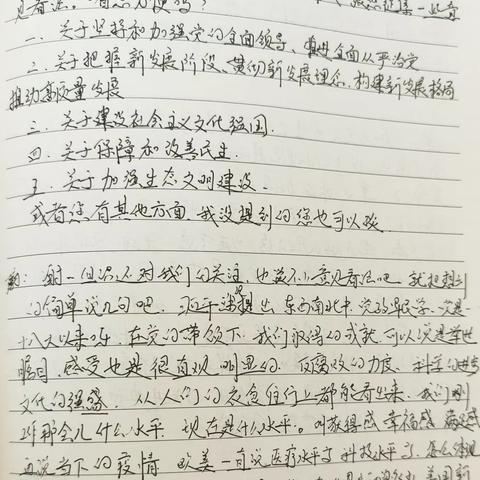 见看法。
一、关于坚持和加强党的全面领导、推进全面从严治党
二、关于把握新发展阶段、贯彻新发展理念、构建新发展格局
推动高质量发展
三、关于建设社会主义文化强国.
四、关于保障和改善民生.
五、关于加强生态文明建设.
或者您有其他方面 我没提到的您也可以谈.
对我们的关注, 也谈不上意见看法吧. 就把想到
的简单说几句吧. 习近平 提出 东西南北中, 党政军民学.
十八大以来 在党的带领下. 我们取得的成就, 可以说是举世
瞩目, 感受也是很直观 明显的 反腐败的力度, 科学的进步
文化的强盛. 从人们的衣食住行上都能看出来. 我们刚
那会儿什么水平. 现在是什么水平。叫获得感 幸福感 满足感
再说当下的疫情 欧美一直说医疗水平高 科技水平高,